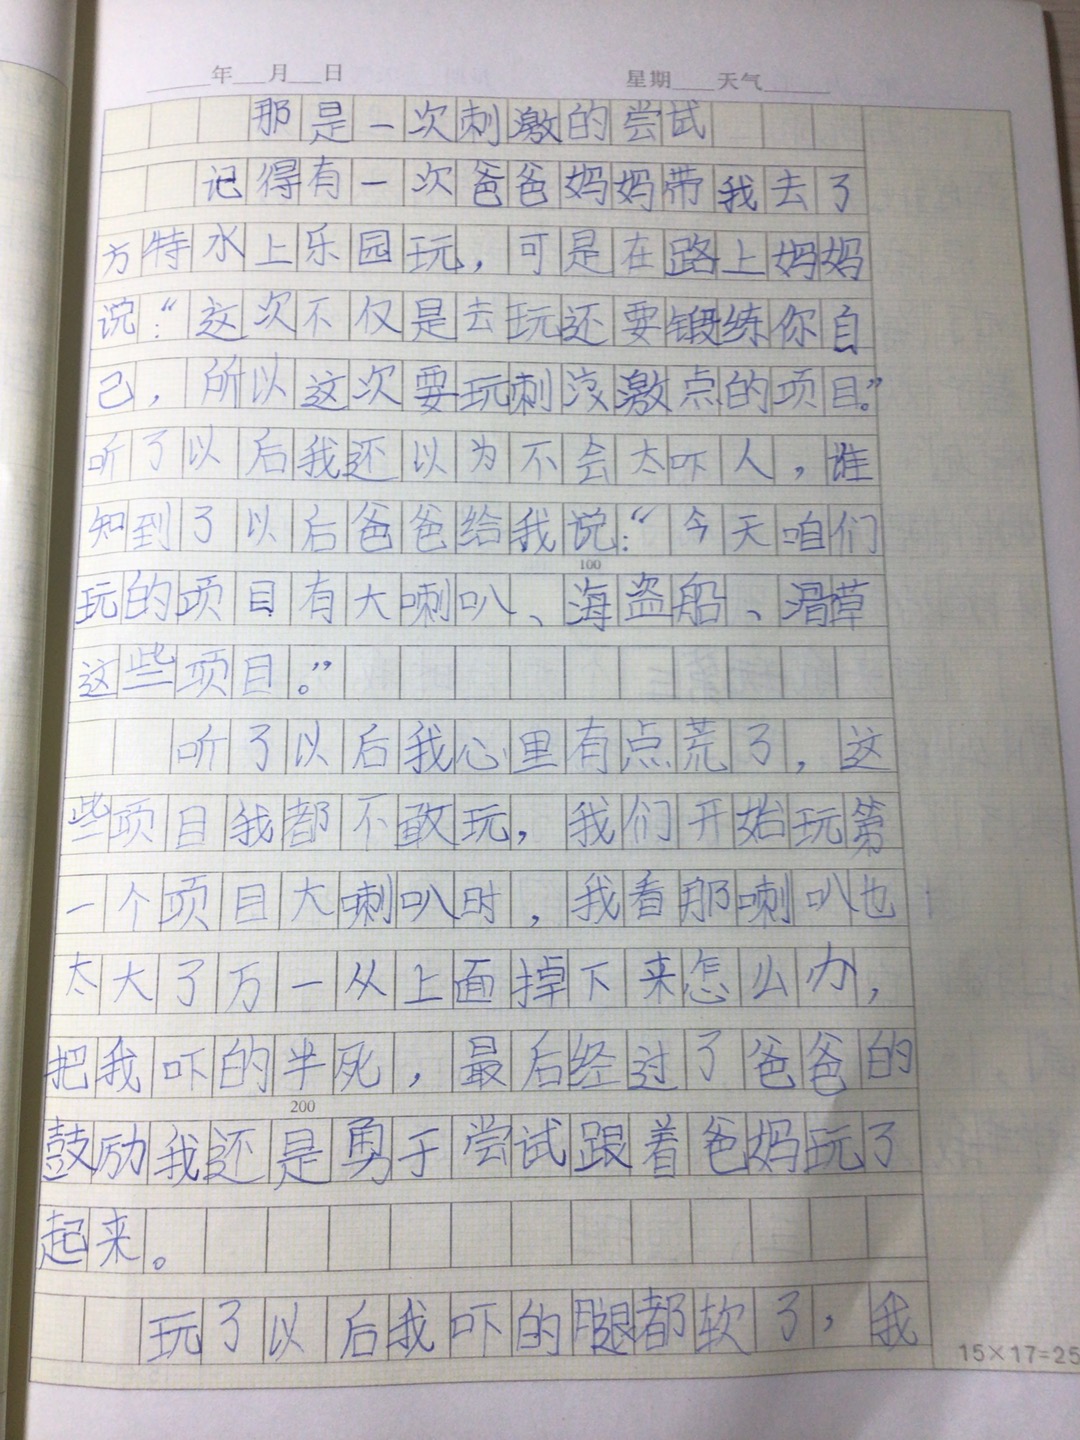 年 月 日 星期 天气
那是一次刺激的尝试
记得有一次爸爸妈妈带我去了
方特水上乐园玩，可是在路上妈妈
说：“这次不仅是去玩还要锻练你自
己，所以这次要玩刺激点的项目。”
听了以后我还以为不会太吓人，谁
知到了以后爸爸给我说：“今天咱们
100
玩的项目有大喇叭、海盗船、滑草
这些项目。”
听了以后我心里有点荒了，这
些项目我都不敢玩，我们开始玩第
一个项目大喇叭时，我看那喇叭也
太大了万一从上面掉下来怎么办，
把我吓的半死，最后经过了爸爸的
200
鼓励我还是勇于尝试跟着爸妈玩了
起来。
玩了以后我吓的腿都软了，我
15×17=25